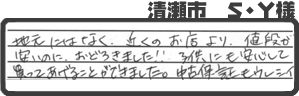 清瀬市 S・Y様
地元にはなく、近くのお店より、値段が
安いのに、おどろきました!! 子供にも安心して
買ってあげることができました。中古保証もウレシイ